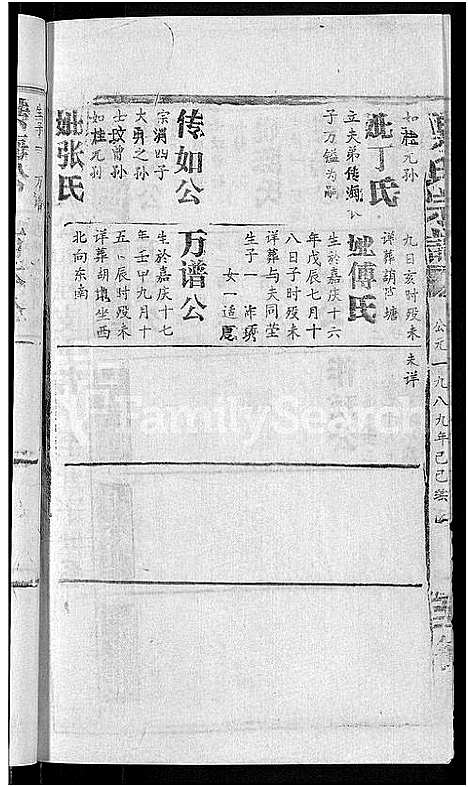 如桂元孙
妣丁氏
立夫弟传海公
子万镒为嗣
传如公
宗渭四子
大勇之孙
士玟曾孙
如桂元孙
妣张氏
九日亥时殁未
详葬胡塘
妣傅氏
生於嘉庆十六
年戊辰七月十
八日子时殁未
详葬与夫同茔
生子一
女一适
万谱公
生於嘉庆十七
年壬申九月十
五日辰时殁未
详葬胡塘坐西
北向东南
未详
公元一九八九年己巳
FamilySearch